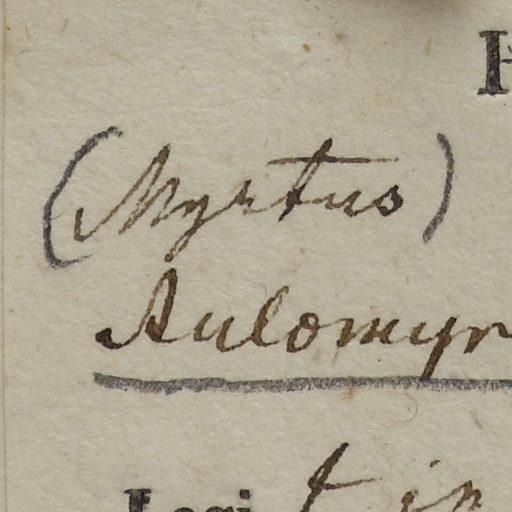 (Myrtus)
Aulomyr
Legi